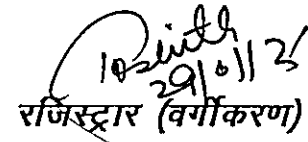 29/01/25
रजिस्ट्रार (वर्गीकरण)